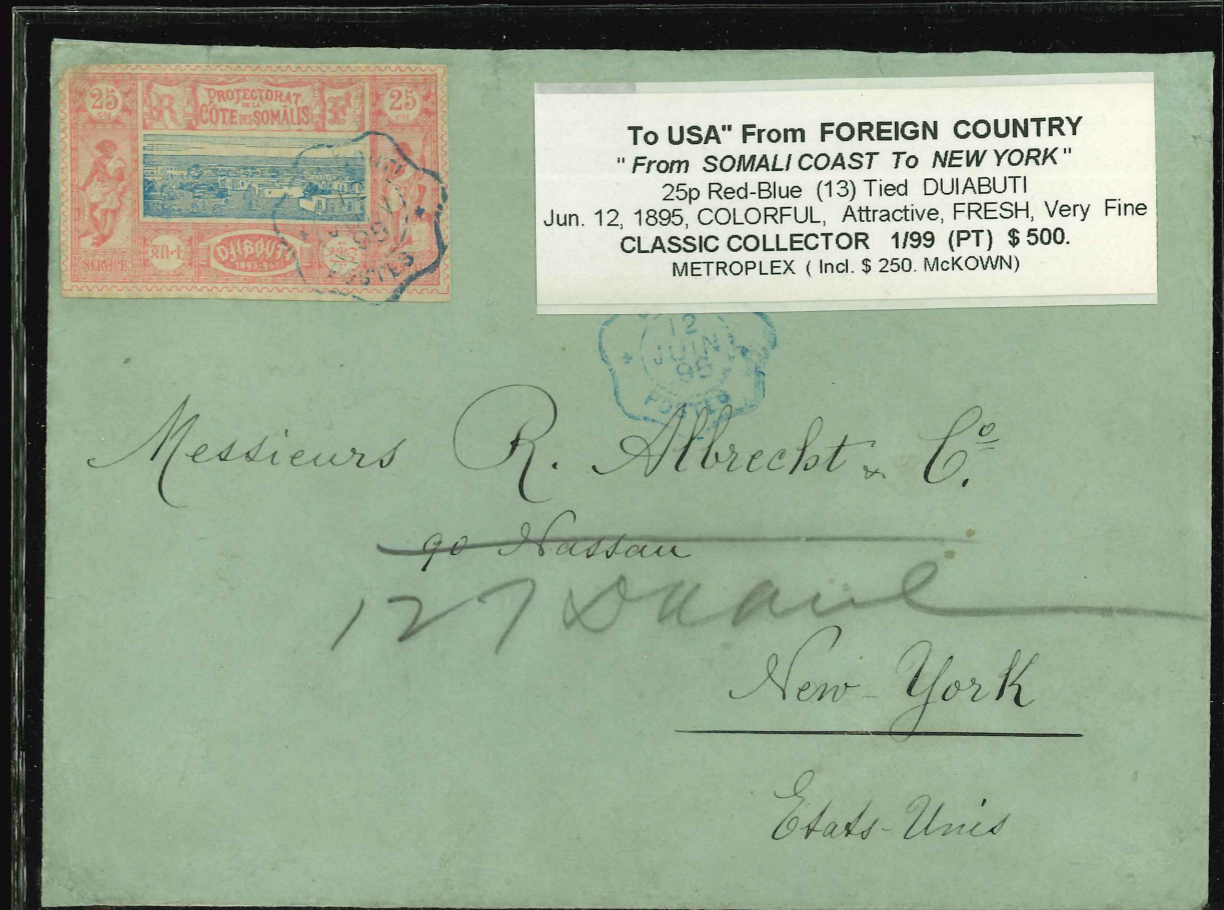 25 PROTECTORAT 25
R DE LA F
CÔTE DES SOMALIS
DJIBOUTI
1893-94
POSTES
To USA" From FOREIGN COUNTRY
" From SOMALI COAST To NEW YORK"
25p Red-Blue (13) Tied DUIABUTI
Jun. 12, 1895, COLORFUL, Attractive, FRESH, Very Fine
CLASSIC COLLECTOR 1/99 (PT) $ 500.
METROPLEX ( Incl. $ 250. McKOWN)
12
JUIN
95
POSTES
Messieurs R. Albrecht & Cº.
90 Nassau
127 Duane
New-York
Etats-Unis